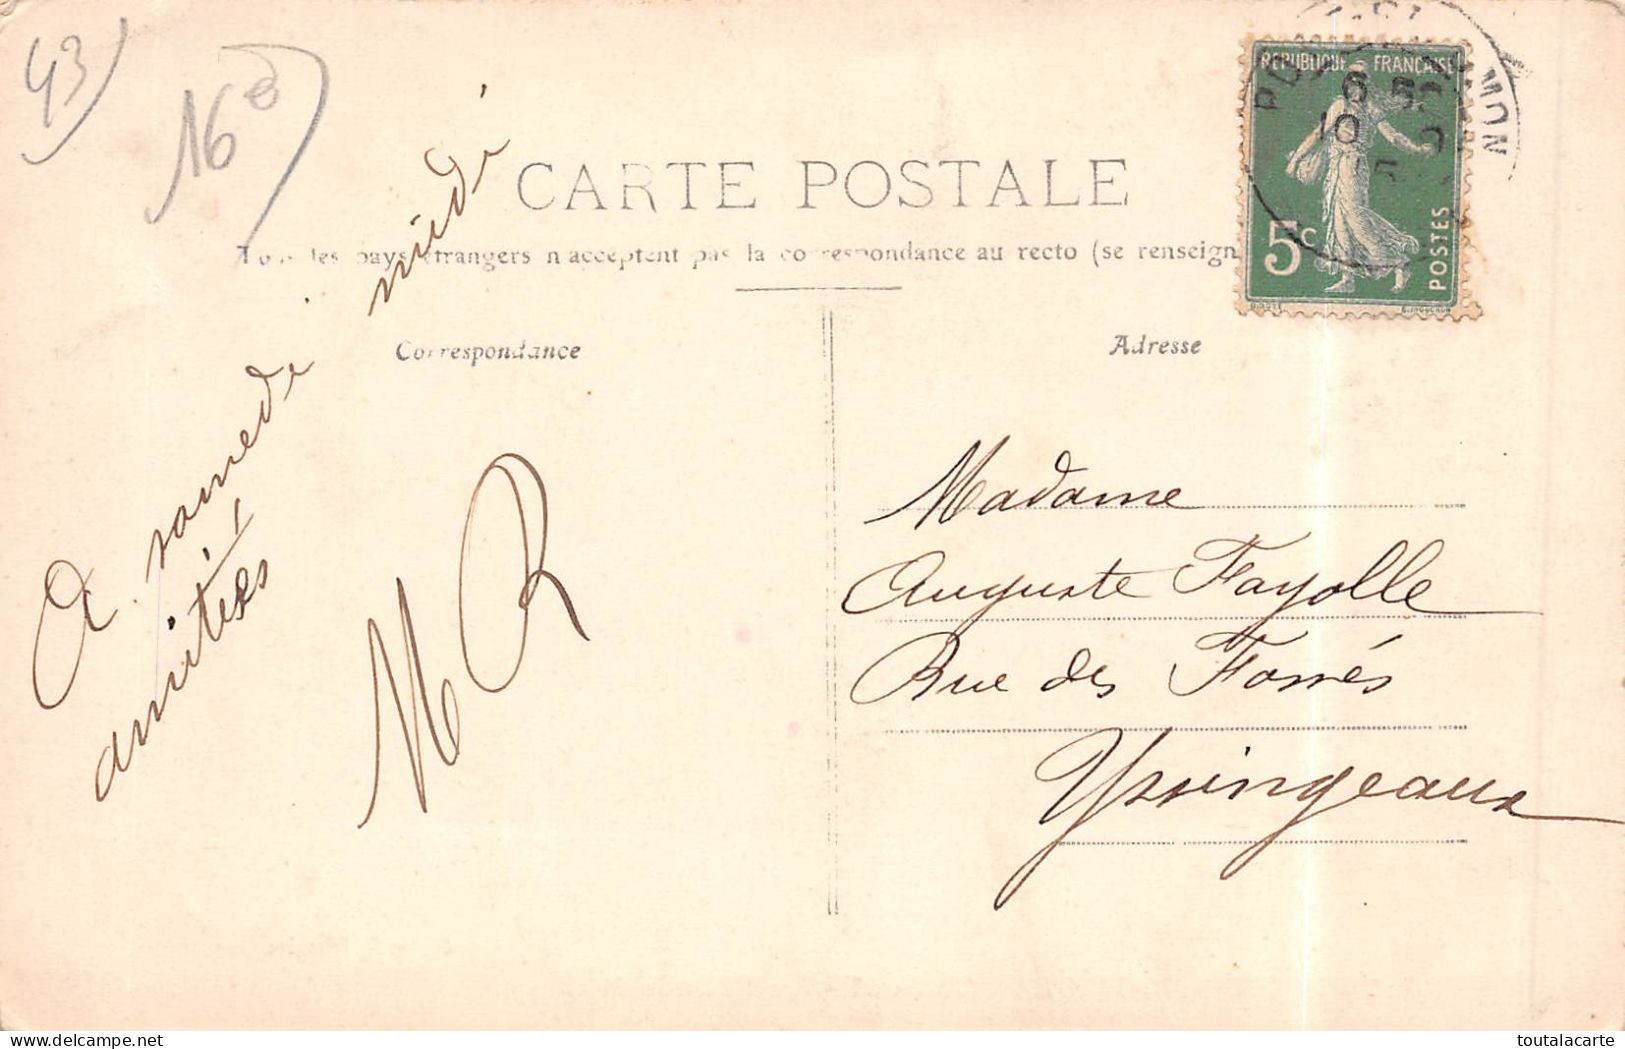 43
16
CARTE POSTALE
Tous les pays étrangers n'acceptent pas la correspondance au recto (se renseign
RÉPUBLIQUE FRANÇAISE
5c
POSTES
Correspondance
Adresse
A samedi midi
amitiés
MR
Madame
Auguste Fayolle
Rue des Fossés
Yssingeaux
delcampe.net
toutalacarte